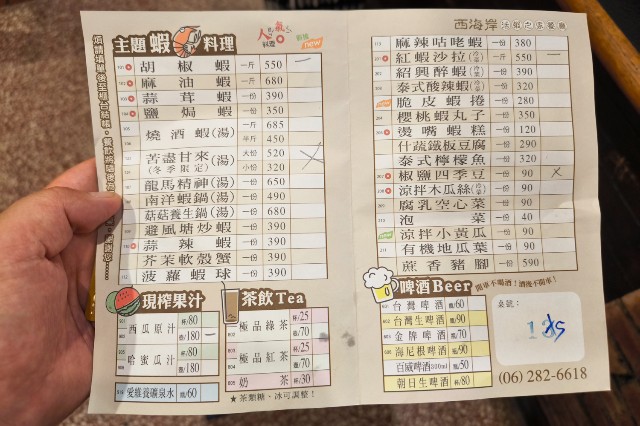 主題蝦料理
人氣料理
新推 new
胡椒蝦 一斤 550
麻油蝦 一斤 680
蒜茸蝦 一份 390
鹽焗蝦 一份 350
燒酒蝦(湯) 一斤 685
半斤 450
苦盡甘來(湯) 大份 520
(冬季限定) 小份 320
龍馬精神(湯) 一份 650
南洋蝦鍋(湯) 一份 490
菇菇養生鍋(湯) 一份 680
避風塘炒蝦 一份 390
蒜辣蝦 一份 390
芥茉軟殼蟹 一份 390
菠蘿蝦球 一份 380
現榨果汁
西瓜原汁 杯/80
壺/180
哈蜜瓜汁 杯/80
壺/180
愛維養礦泉水 瓶/60
茶飲Tea
極品綠茶 杯/25
壺/70
極品紅茶 杯/25
壺/70
奶茶 杯/30
★茶類糖、冰可調整!
西海岸活蝦之家餐廳
麻辣咕咾蝦 一份 380
紅蝦沙拉(冷盤) 一斤 550
紹興醉蝦(冷盤) 一份 390
泰式酸辣蝦(冷盤) 一份 320
脆皮蝦捲 一份 280
櫻桃蝦丸子 一份 350
燙嘴蝦糕 一份 120
什蔬鐵板豆腐 一份 290
泰式檸檬魚 一份 320
椒鹽四季豆 一份 90
涼拌木瓜絲(冷盤) 一份 90
腐乳空心菜 一份 90
泡菜 一份 40
涼拌小黃瓜 一份 90
有機地瓜葉 一份 90
蔗香豬腳 一份 590
啤酒Beer
開車不喝酒!酒後不開車!
台灣啤酒 瓶/60
台灣生啤酒 瓶/90
金牌啤酒 瓶/70
海尼根啤酒 瓶/90
百威啤酒 瓶/50
朝日生啤酒 杯/80
桌號:
(06) 282-6618